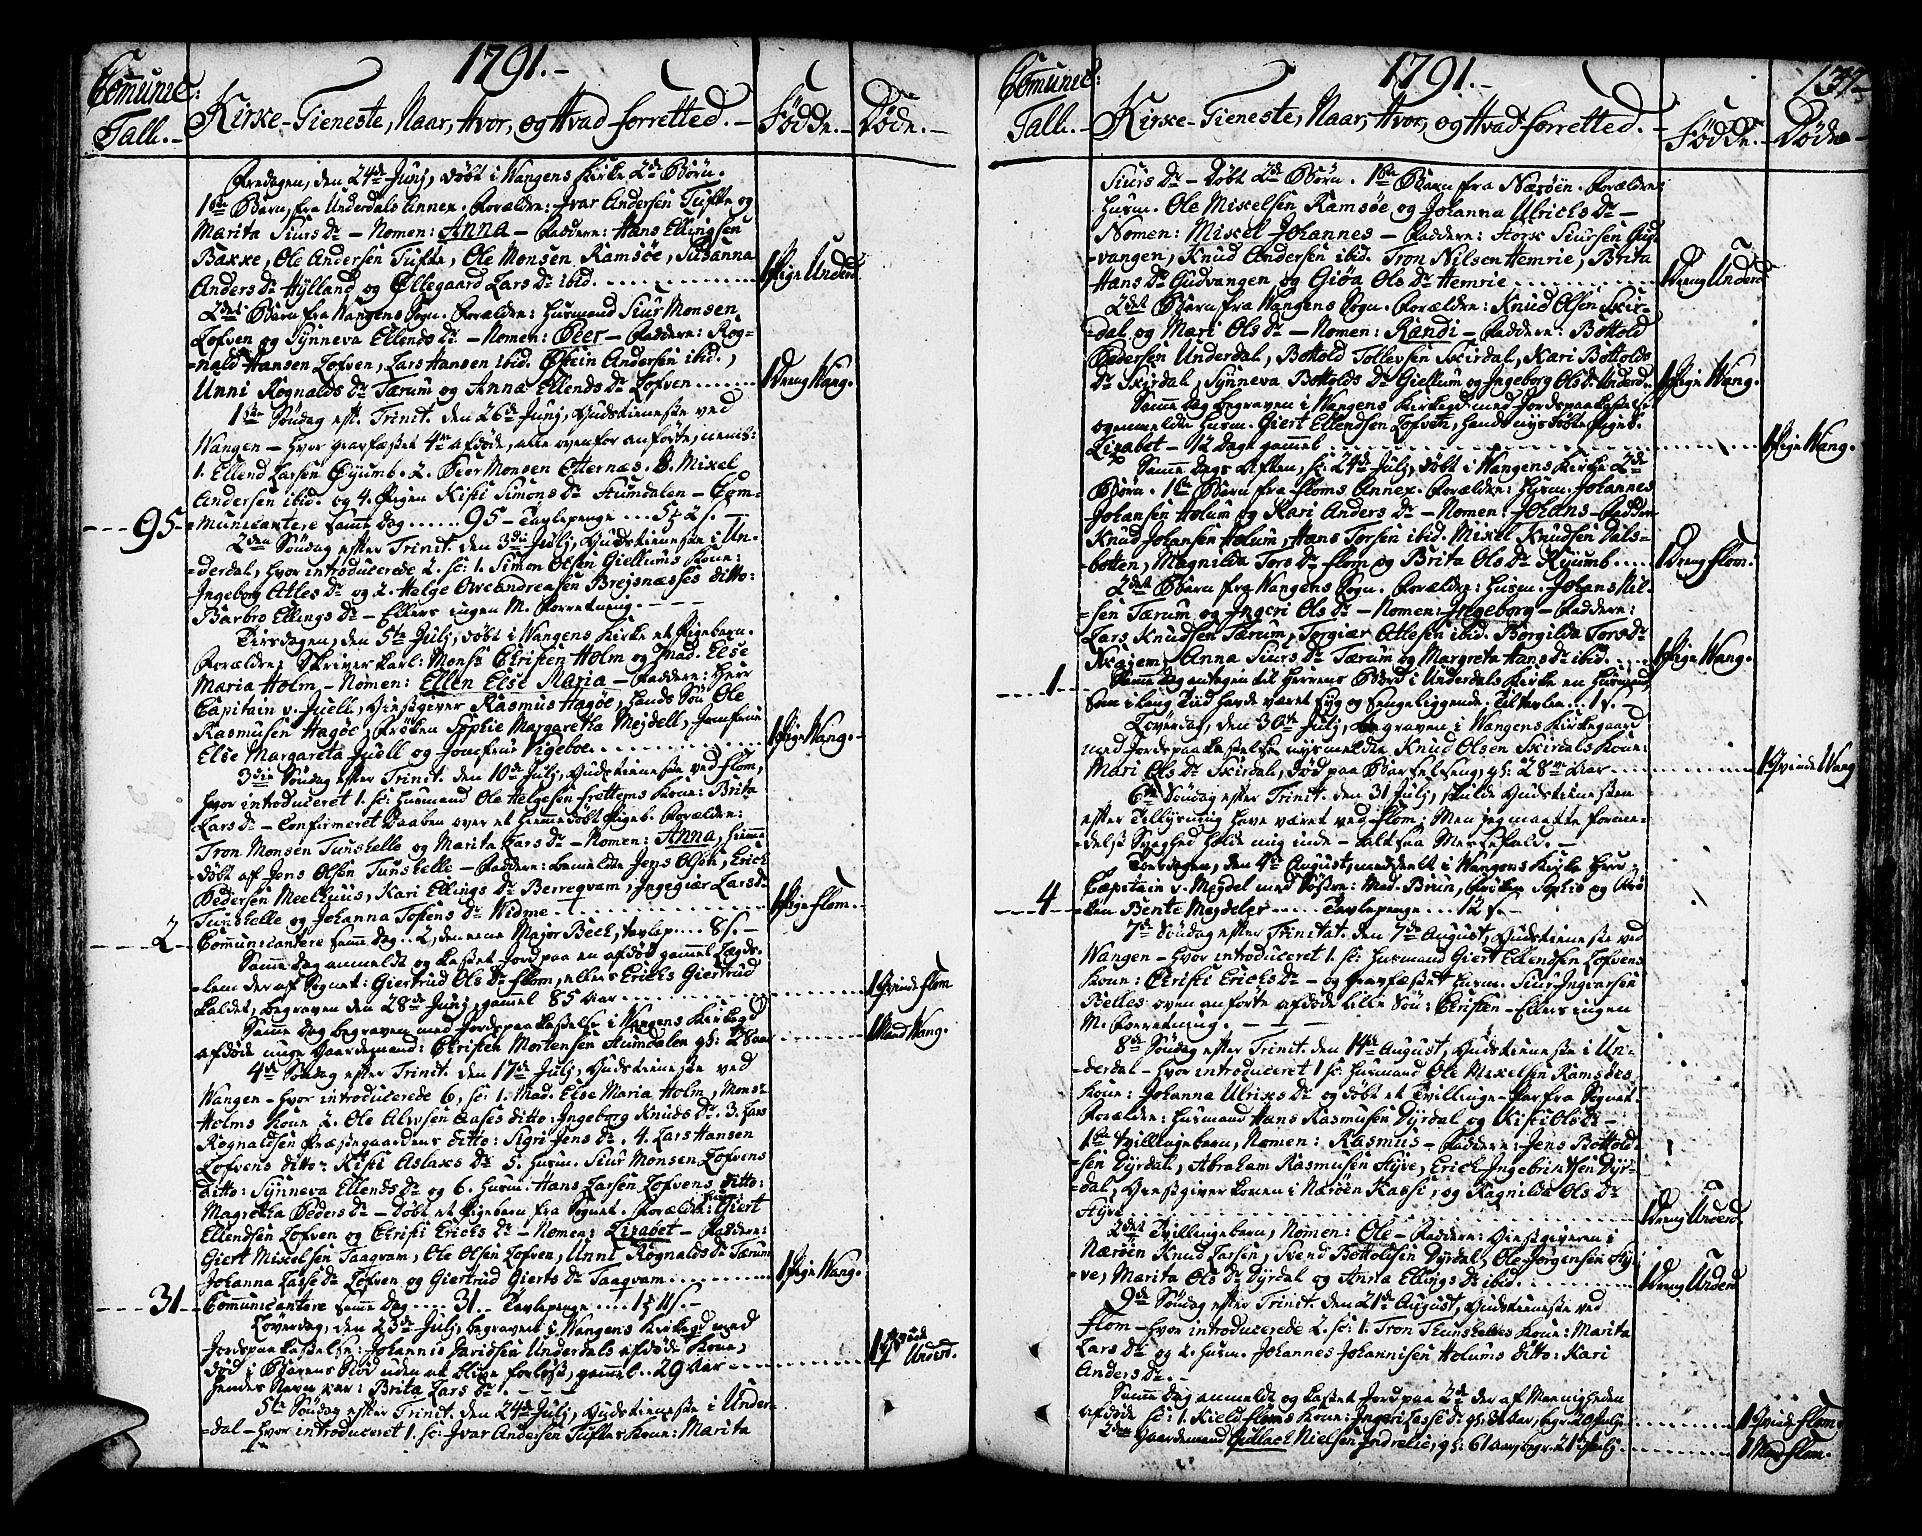 1791.-
Communic: Tall.-
Kirke-Tieneste, Naar, Hvor, og Hvad forretted.-
Fødde.-
Døde.-
Fredagen, den 24de Junj, døbt i Wangens Kirke 2de Børn.
1ste Barn, fra Underdals Annex. Forældre: Ivar Andersen Tufte og
Marita Siurs Dr - Nomen: Anna - Faddere: Hans Ellingsen
Bakke, Ole Andersen Tufte, Ole Monsen Ramsøe, Susanna
Anders Dr Hylland og Ellegaard Lars Dr ibid.
1 Pige Underd.
2det Barn fra Wangens Sogn. Forældre: Husmand Siur Monsen
Lofven og Synneva Ellends Dr - Nomen: Peer - Faddere: Rog-
=nald Hansen Lofven, Lars Hansen ibid. Østein Andersen ibid.,
Unni Rognalds Dr Tærum og Anna Ellends Dr Lofven
1 Dreng Wang.
1ste Søndag eft. Trinit. den 26de Junj, Gudstieneste ved
Wangen - hvor gravfæstet 4re afdøde, alle ovenfor anførte, nemlig:
1. Ellend Larsen 2. Peer Monsen Otternæs. 3. Mikel
Andersen ibid. og 4. Pigen Kisti Simons Dr Stumdalen - Com-
95
=municantere samme Dag ...... 95 - Tavlepenge
2den Søndag efter Trinit. den 3die Julj, Gudstieneste i Un-
=derdal, hvor introducerede 2. sc: 1. Simon Olsen Giellums Kone:
Ingeborg Atles Dr og 2. Helge Oveandreasen Brejsnæsses ditto:
Barbro Ellings Dr - Ellers ingen M. Forretning.
Tirsdagen, den 5te Julj, døbt i Wangens Kirke et Pigebarn.
Forældre: Skriver karl: Monsr Christen Holm og Mad. Else
Maria Holm - Nomen: Ellen Else Maria - Faddere: Herr
Capitain v. Juell, Giestgiver Rasmus Hagøe, hands Søn Ole
Rasmusen Hagøe, Frøken Sophie Margaretha Mejdell, Jomfrue
Else Margareta Juell og Jomfrue Vigeboe
1 Pige Wang.
3die Søndag efter Trinit. den 10de Julj, Gudstieneste ved Flom,
hvor introduceret 1. sc: Husmand Ole Helgesen Frettems Kone: Brita
Lars Dr - Confirmeret Daaben over et hiemmedøbt Pigeb. Forældre:
Tron Monsen Tunshelle og Marita Lars Dr - Nomen: Anna, hiemme
=døbt af Jens Olsen Tunshelle - Faddere: bemeldte Jens Olsen, Erich
Pedersen Meelhuus, Kari Ellings Dr Berreqvam, Ingegiær Lars Dr
Tunshelle og Johanna Tosens Dr Vidme
1 Pige Flom.
2
Communicantere samme Dag .. 2, den eene Major Bech, Tavlep.... 8 s. -
Samme Dag anmeldt og kastet Jord paa en afdød gammel Lægds-
=lem der af Sognet: Giertrud Ols Dr Flom, ellers Erichs Giertrud
kaldet, begraven den 28de Junj, gammel 85 Aar
1 Qvinde Flom
Samme Dag begraven med Jordspaakastelse i Wangens Kirkegd
afdøde unge Gaardemand: Christen Mortensen Stumdalen gl: 28 aar
1 Mand Wang.
4de Søndag efter Trinit. den 17de Julj, Gudstieneste ved
Wangen - hvor introducerede 6, sc: 1. Mad. Else Maria Holm, Monsr
Holms Kone 2. Ole Alvsen Aases ditto: Ingeborg Knuds Dr. 3. Lars
Rognaldsen Præstegaardens ditto: Sigri Jens Dr. 4. Lars Hansen
Lofvens ditto: Kisti Aslaks Dr 5. Husm. Siur Monsen Lofvens
ditto: Synneva Ellends Dr og 6. Husm. Hans Larsen Lofvens ditto:
Magretha Peders Dr - Døbt et Pigebarn fra Sognet. Forældre: Husm. Giert
Ellendsen Lofven og Christi Erichs Dr - Nomen: Lizabet - Faddere:
Giert Mikelsen Taagvam, Ole Olsen Lofven, Unni Rognalds Dr Tærum
Johanna Lasse Dr Lofven og Giertrud Gierts Dr Taaqvam
1 Pige Wang.
31
Communicantere samme Dag .... 31 .. Tavlepenge
Løverdag, den 23de Julj, begraven i Wangens Kirkegd med
Jordspaakastelse: Johannis Underdals afdøde Kone,
død i Barens Nød uden at blive forløst, gammel .. 29 Aar
1 Qvinde Underd.
hendes Navn var: Brita Lars Dr.
5te Søndag efter Trinit. den 24de Julj, Gudstieneste i Under-
=dal - hvor introduceret 1. sc: Ivar Andersen Tuftes Kone: Marita
1791.-
Communic: Tall.-
Kirke-Tieneste, Naar, Hvor, og Hvad forretted.-
Fødde.-
Døde-
Siurs Dr - Døbt 2de Børn. 1ste Barn fra Nærøen. Forældre:
Husm. Ole Mikelsen Ramsøe og Johanna Ulrichs Dr -
Nomen: Mikel Johannes - Faddere: Siursen Gud-
=vangen, Knud Andersen ibid. Tron Nilsen Hemrie, Brita
Hans Dr Gudvangen og Giøa Ols Dr Hemrie
1 Dreng Underd
2det Barn fra Wangens Sogn. Forældre: Knud Olsen Skir-
=dal og Mari Ols Dr - Nomen: Randi - Faddere: Bottold
Pedersen Underdal, Bottold Tollevsen Skirdal, Kari Bottolds
Dr Skirdal, Synneva Bottolds Dr Giellum og Ingeborg Ols Dr Underd.
1 Pige Wang.
Samme Dag begraven i Wangens Kirkegd med Jordspaakastelse
ovenmeldte Husm. Giert Ellendsen Lofven, hands nysdøbte Pigeb.
Lizabet - 12 Dage gammel
1 Pige Wang.
Samme Dags Aften, sc: 24de Julj, døbt i Wangens Kirke 2de
Børn. 1ste Barn fra Floms Annex. Forældre: Husm. Johannes
Johansen Holum og Kari Anders Dr - Nomen: Johans - Faddere
Knud Johansen Holum, Hans Torsen ibid. Mikel Knudsen Dals-
=botten, Magnilda Tors Dr Flom og Brita Ols Dr Ryumb
1 Dreng Flom.
2det Barn fra Wangens Sogn. Forældre: Husm. Johans Nil-
=sen Tærum og Ingeri Ols Dr - Nomen: Ingeborg - Faddere:
Lars Knudsen Tærum, Torgiær Atlesen ibid. Borgilda Tors Dr
Skajem, Anna Siurs Dr Tærum og Margreta Hans Dr ibid.
1 Pige Wang.
1
Samme Dag antagen til Herrens Bord i Underdals Kirke en Husmand,
som i lang Tiid havde været syg og sengeliggende. Til Tavlen ... 1 s. -
Løverdag, den 30te Julj, begraven i Wangens Kirkegaard
med Jordspaakastelse nysmeldte Knud Olsen Skirdals Kone:
Mari Ols Dr Skirdal, død paa Barselseng, gl: 28 Aar
1 Qvinde Wang
6te Søndag efter Trinit. den 31 Julj, skulde Gudstienesten
efter Tillysning have været ved Flom; Men jeg maatte forme-
=delst Svaghed holde mig inde - Altsaa Messefald. -
Torsdagen, den 4de August, meddeelt i Wangens Kirke Herr
4
Capitain v. Mejdel med Søstre: Mad. Brun, Frøiken Sophie og Frø-
=ken Bente Mejdeler ..... Tavlepenge ... 12 s. -
7de Søndag efter Trinitat. den 7de August, Gudstieneste ved
Wangen - hvor introduceret 1. sc: Husmand Giert Ellendsen Lofvens
Kone: Christi Erichs Dr - og gravfæstet Husm. Siur Ingvarsen
Belles ovenanførte afdøde lille Søn: Christen - Ellers ingen
M. Forretning.
8de Søndag efter Trinit. den 14de August, Gudstieneste i Un-
=derdal - hvor introduceret 1 sc: Husmand Ole Mikelsen Ramsøes
Kone: Johanna Ulriks Dr og døbt et Tvillinge-Par fra Sognet.
Forældre: Husmand Hans Rasmusen Dyrdal og Kisti Ols Dr -
1ste Tvillingebarn, Nomen: Rasmus - Faddere: Jens Bottold-
=sen Dyrdal, Abraham Rasmusen Styve, Erich Ingebrigtsen Dyr-
=dal, Giestgiver Konen i Nærøen Kassi, og Ragnilda Ols Dr
Styve
1 Dreng Underd.
2det Tvillingebarn, Nomen: Ole - Faddere: Giestgiveren i
Nærøen Knud Larsen, Svend Bottoldsen Dyrdal, Ole Jørgensen Sty-
=ve, Marita Ols Dr Dyrdal og Anna Ellings Dr ibid.
1 Dreng Underd
9de Søndag efter Trinit. den 21de August, Gudstieneste ved
Flom - hvor introducerede 2. sc: 1. Tron Tunshelles Kone: Marita
Lars Dr og 2. Husm. Johannes Johannisen Holums ditto: Kari
Anders Dr. -
Samme Dag anmeldt og kastet Jord paa 2de der af Menigheden
afdøde sc: 1. Kield Floms Kone: Ingeri Lasse Dr begr. 20 Julj
1 Qvinde Flom
2den Gaardemand Gullach Nielsen Indrelie, gl: 61 Aar, begr. 21de Julj
1 Mand Flom.